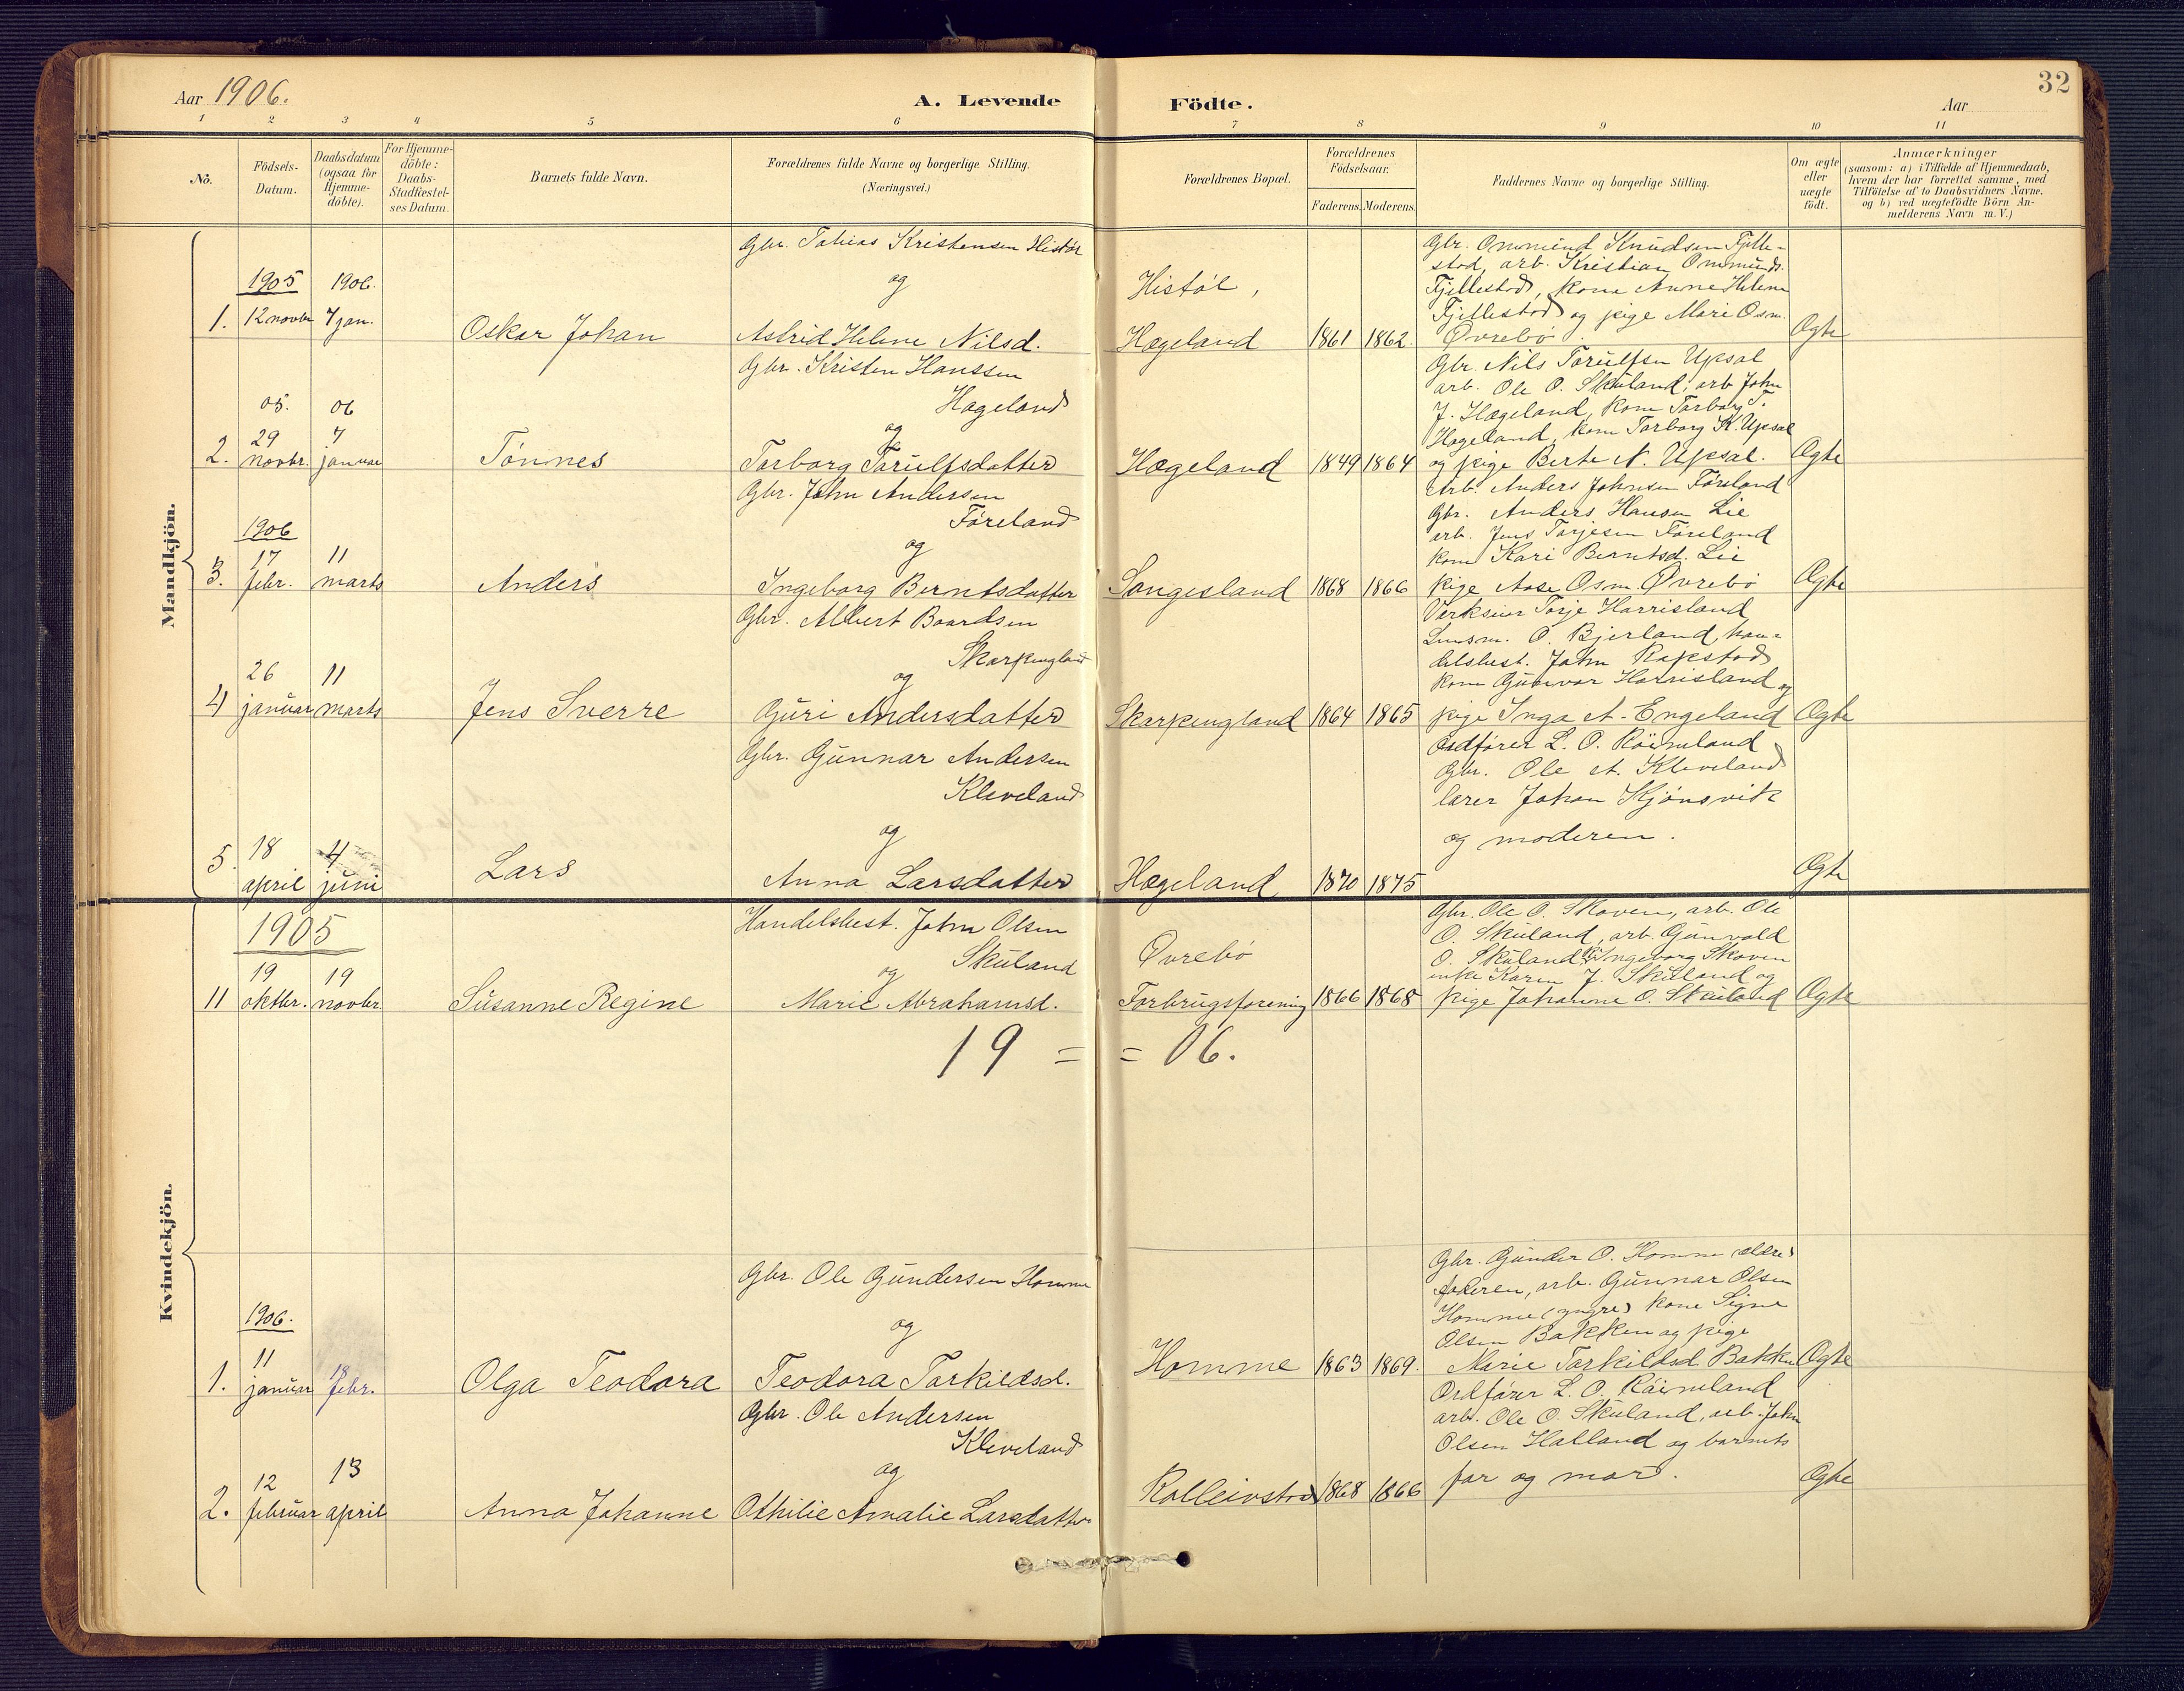 32
Aar 1906.
A. Levende Födte.
Aar
1 2 3 4 5 6 7 8 9 10 11
No.
Födsels-
Datum.
Daabsdatum
(ogsaa for
Hjemme-
döbte).
For Hjemme-
döbte:
Daabs-
Stadfæstel-
ses Datum.
Barnets fulde Navn.
Forældrenes fulde Navne og borgerlige Stilling.
(Næringsvei.)
Forældrenes Bopæl.
Forældrenes
Födselsaar.
Faderens. Moderens.
Faddernes Navne og borgerlige Stilling.
Om ægte
eller
uægte
födt.
Anmærkninger
(saasom: a) i Tilfælde af Hjemmedaab,
hvem der har forrettet samme, med
Tilföielse af to Daabsvidners Navne,
og b) ved uægtefödte Börn An-
melderens Navn m. V.)
Mandkjön.
1.
1905
12 novbr
1906.
7 jan.
Oskar Johan
Gbr. Tobias Kristensen Histøl
og
Astrid Helene Nilsd.
Histøl,
Hægeland
1861 1862.
Gbr. Ommund Knudsen Fjelle-
stad, arb. Kristian Ommunds.
Fjellestad, kone Anne Helene
Fjellestad og pige Mari Osm.
Øvrebø.
Ægte
2.
05.
29
novbr.
06
7
januar
Tønnes
Gbr. Kristen Hanssen
Hægeland
og
Torborg Torulfsdatter
Hægeland
1849 1864
Gbr. Nils Torulfsen Upsal
arb. Ole O. Skuland, arb John
J. Hægeland, kone Torborg T.
Hægeland, kone Torborg K. Upsal
og pige Berte N. Upsal.
Ægte
3.
1906
17
febr.
11
marts
Anders
Gbr. John Andersen
Føreland
og
Ingeborg Berntsdatter
Songesland
1868 1866
Arb. Anders Johnsen Føreland
Gbr. Anders Hansen Lie
arb. Jens Torjesen Føreland
kone Kari Berntsd. Lie
pige Aase Osm. Øvrebø
Ægte
4
26
januar
11
marts
Jens Sverre
Gbr. Albert Baardsen
Skarpengland
og
Guri Andersdatter
Skarpengland
1864 1865
Verkseier Torje Harrisland
Lensm. O. Bjerland, han-
delsbest. John Rapstad
kone Gunvor Harrisland og
pige Inga A. Engeland
Ægte
5
18
april
4
juni
Lars
Gbr. Gunnar Andersen
Kleveland
og
Anna Larsdatter
Hægeland
1870 1875
Ordfører L. O. Røinesland
Gbr. Ole A. Kleveland
lærer Johan Kjønsvik
og moderen.
Ægte
Kvindekjön.
1905
11
19
oktbr.
19
novbr.
Susanne Regine
Handelsbest. John Olsen
Skuland
og
Marie Abrahamsd.
Øvrebø
Forbrugsforening
1866 1868
Gbr. Ole O. Skoven, arb. Ole
O. Skuland, arb. Gunvald
O. Skuland, Ingeborg Skoven
enke Karen J. Skuland og
pige Johanne O. Skuland
Ægte
19 = = 06.
1.
1906.
11
januar
18
febr.
Olga Teodora
Gbr. Ole Gundersen Homme
og
Teodora Torkildsd.
Homme
1863 1869.
Gbr. Gunder O. Homme (ældre)
faderen, arb. Gunnar Olsen
Homme (yngre) kone Signe
Olsen Bakken og pige
Marie Torkildsd. Bakken
Ægte
2.
12
februar
13
april
Anna Johanne
Gbr. Ole Andersen
Kleveland
og
Othilie Amalie Larsdatter
Kolleivstad
1868 1866
Ordfører L. O. Røinesland
arb. Ole O. Skuland, arb. John
Olsen Halland og barnets
far og mor.
Ægte